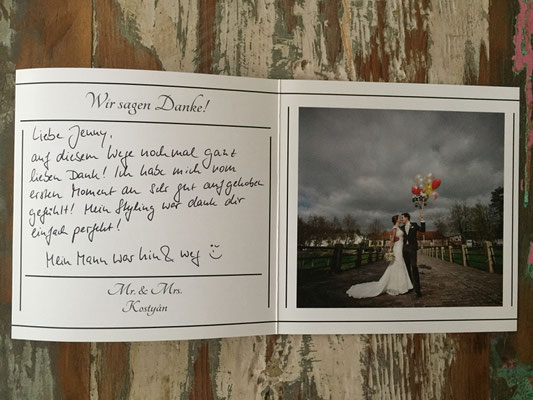 Wir sagen Danke!
Liebe Jenny,
auf diesem Wege nochmal ganz
lieben Dank! Ich habe mich vom
ersten Moment an sehr gut aufgehoben
gefühlt! Mein Styling war dank dir
einfach perfekt!
Mein Mann war hin & weg
Mr. & Mrs.
Kostyán